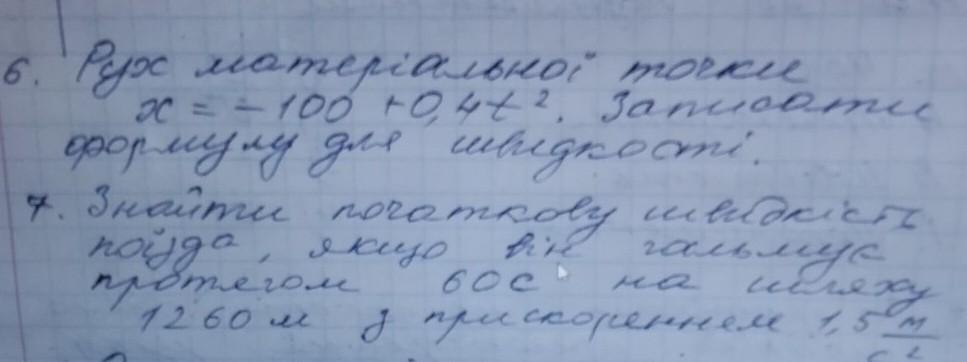 6. Рух матеріальної точки
x = -100 + 0,4t². Записати
формулу для швидкості.
7. Знайти початкову швидкість
поїзда, якщо він гальмує
протягом 60с на шляху
1260 м з прискоренням 1,5 м/с²